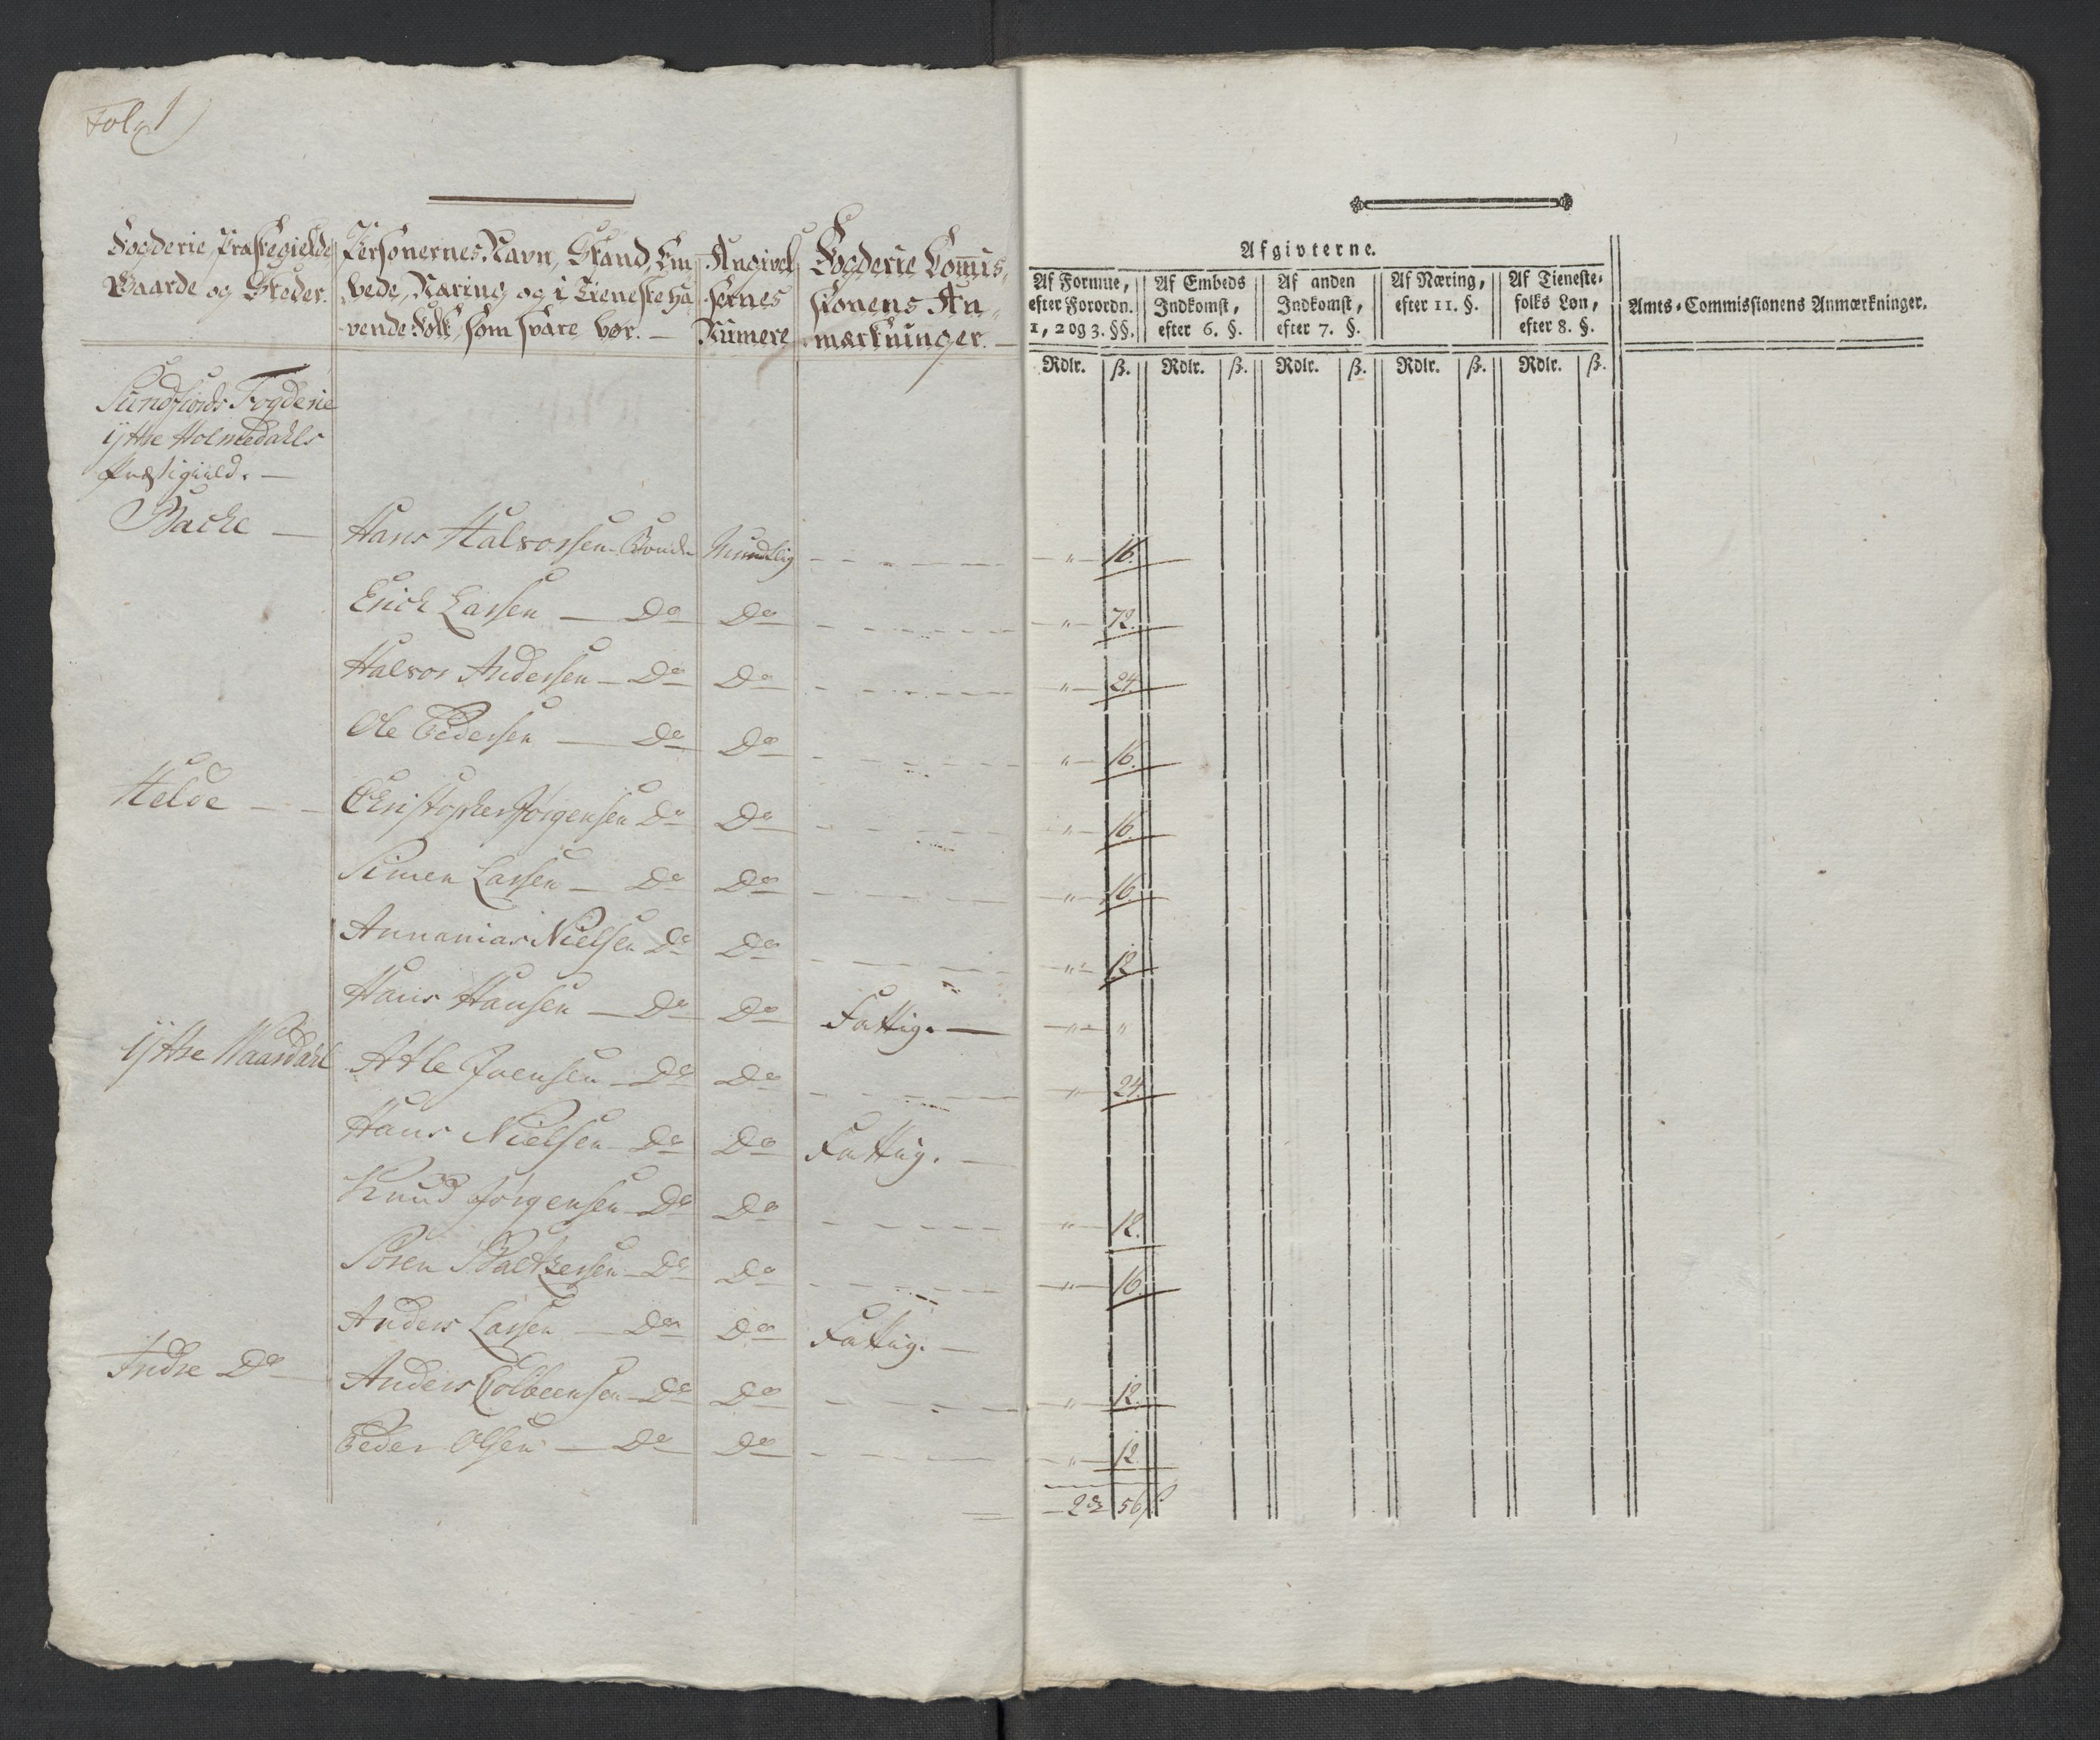 Fol. 1
Fogderie, Præstegielde, Gaarde og Steder.
Personernes Navn, Stand, Em-
bede, Næring og i Tieneste ha-
vende Folk, som svare bør. —
Angivel-
sernes
Numere
Fogderie Com̄is-
sionens An-
mærkninger. —
Afgivterne.
Af Formue, efter Forordn. 1, 2 og 3. §§.
Af Embeds Indkomst, efter 6. §.
Af anden Indkomst, efter 7. §.
Af Næring, efter 11. §.
Af Tieneste-folks Løn, efter 8. §.
Amts-Commissionens Anmærkninger.
Rdlr. ß. Rdlr. ß. Rdlr. ß. Rdlr. ß. Rdlr. ß.
Sundfiords Fogderie
ÿttre Holmedahls
Præstigield. —
Backe — Hans Halvorsen Bonde Mundtlig — „ — 16.
Erich Larsen — Do Do — „ — 72.
Halvor Andersen — Do Do — „ — 24.
Ole Pedersen — Do Do — „ — 16.
Helde — Christopher Jørgensen Do Do — „ — 16.
Simen Larsen — Do Do — „ — 16.
Annanias Nielsen Do Do — „ — 12
Hans Hansen — Do Do Fattig. — „ — „
ÿttre Waardahl Atle Joensen — Do Do — „ — 24.
Hans Nielsen — Do Do Fattig. —
Knud Jørgensen — Do Do — „ — 12.
Søren Balthersen — Do Do — „ — 16.
Anders Larsen — Do Do Fattig. —
Indre Do — Anders Colbeensen — Do Do — „ — 12.
Peder Olsen — Do Do — „ — 12
2 rd 56 ß